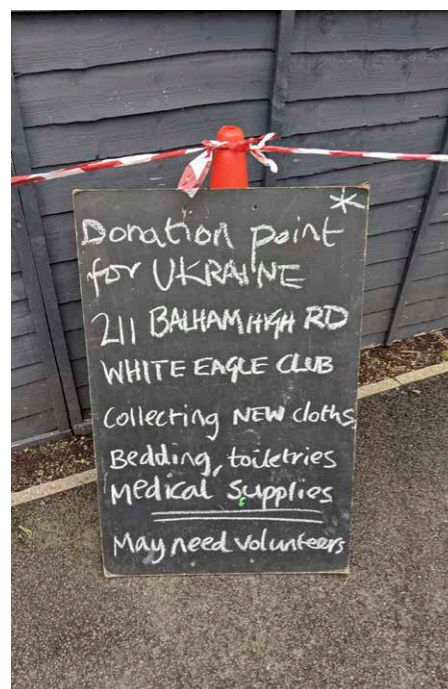 Donation point *
for UKRAINE
211 BALHAM HIGH RD
WHITE EAGLE CLUB
Collecting NEW cloths,
Bedding, toiletries
Medical Supplies
May need volunteers